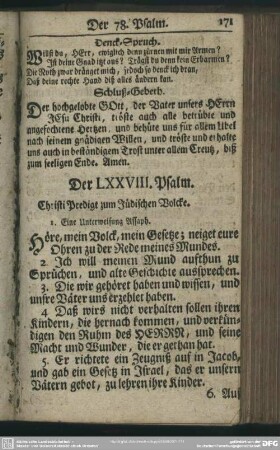 Der 78. Psalm. 171
Denck-Spruch.
Willst du, HErr, ewiglich denn zürnen mit mir Armen?
Ist deine Gnad itzt aus? Trägst du denn kein Erbarmen?
Die Noth zwar dränget mich, jedoch so denck ich dran,
Daß deine rechte Hand diß alles ändern kan.
Schluß-Gebeth.
Der hochgelobte GOtt, der Vater unsers HErrn
JEsu Christi, tröste auch alle betrübte und
angefochtene Hertzen, und behüte uns für allem Übel
nach seinem gnädigen Willen, und tröste und erhalte
uns auch in beständigem Trost unter allem Creutz, biß
zum seeligen Ende. Amen.
Der LXXVIII. Psalm.
Christi Predige zum Jüdischen Volcke.
1. Eine Unterweisung Assaph.
Höre, mein Volck, mein Gesetz; neiget eure
Ohren zu der Rede meines Mundes.
2. Ich will meinen Mund aufthun zu
Sprüchen, und alte Geschichte aussprechen.
3. Die wir gehöret haben und wissen, und
unsre Väter uns erzehlet haben.
4 Daß wirs nicht verhalten sollen ihren
Kindern, die hernach kommen, und verkün-
digen den Ruhm des HERRN, und seine
Macht und Wunder, die er gethan hat.
5. Er richtete ein Zeugniß auf in Jacob,
und gab ein Gesetz in Israel, das er unsern
Vätern gebot, zu lehren ihre Kinder.
6. Auf